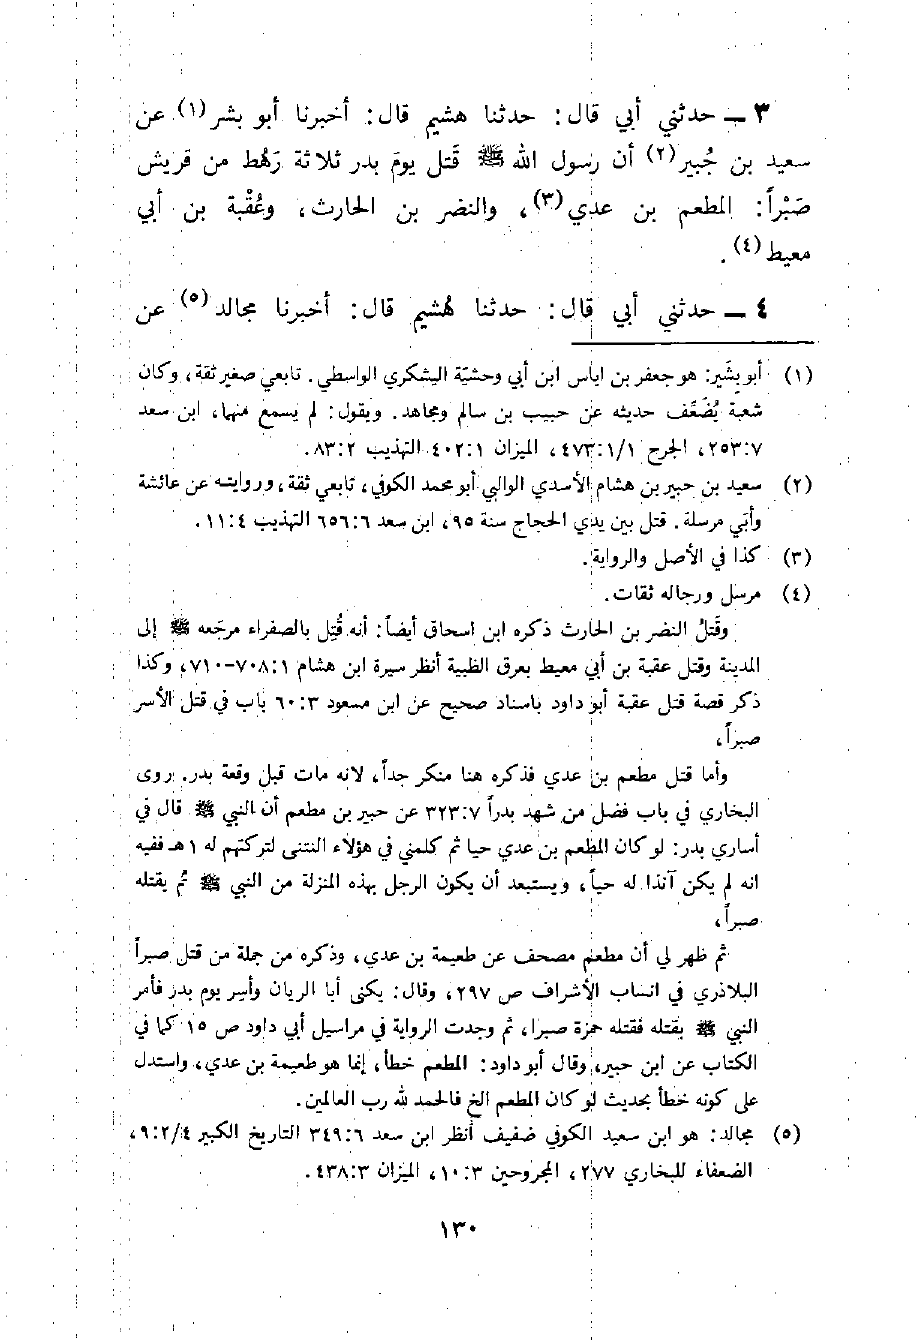 ٣ ــ حدثني أبي قال: حدثنا هشيم قال: أخبرنا أبو بشر(١) عن
سعيد بن جُبير(٢) أن رسول الله ﷺ قَتل يومَ بدر ثلاثة رَهُط من قريش
صَبْراً: المطعم بن عدي(٣)، والنضر بن الحارث، وعُقْبة بن أبي
معيط(٤).
٤ ــ حدثني أبي قال: حدثنا هُشيم قال: أخبرنا مجالد(٥) عن
(١) أبو بشير: هو جعفر بن اياس ابن أبي وحشيّة اليشكري الواسطي. تابعي صغير ثقة، وكان
شعبة يُضَعِّف حديثه عن حبيب بن سالم ومجاهد. ويقول: لم يسمع منهما، ابن سعد
٢٥٣:٧، الجرح ٤٧٣:١/١، الميزان ٤٠٢:١ التهذيب ٨٣:٢.
(٢) سعيد بن حبير بن هشام الأسدي الوالبي أبو محمد الكوفي، تابعي ثقة، وروايته عن عائشة
وأبي مرسلة. قتل بين يدي الحجاج سنة ٩٥، ابن سعد ٦٥٦:٦ التهذيب ١١:٤.
(٣) كذا في الأصل والرواية.
(٤) مرسل ورجاله ثقات.
وقَتلُ النضر بن الحارث ذكره ابن اسحاق أيضاً: أنه قُتِل بالصفراء مرجَعه ﷺ إلى
المدينة وقتل عقبة بن أبي معيط بعرق الظبية أنظر سيرة ابن هشام ٧٠٨:١-٧١٠، وكذا
ذكر قصة قتل عقبة أبو داود باسناد صحيح عن ابن مسعود ٦٠:٣ باب في قتل الأسر
صبراً،
وأما قتل مطعم بن عدي فذكره هنا منكر جداً، لانه مات قبل وقعة بدر. روى
البخاري في باب فضل من شهد بدراً ٣٢٣:٧ عن حبير بن مطعم أن النبي ﷺ قال في
أساري بدر: لو كان المطعم بن عدي حيا ثم كلمني في هؤلاء النتنى لتركتهم له ١ هـ ففيه
انه لم يكن آنذا له حياً، ويستبعد أن يكون الرجل بهذه المنزلة من النبي ﷺ ثُم يقتله
صبراً،
ثم ظهر لي أن مطعم مصحف عن طعيمة بن عدي، وذكره من جملة من قتل صبراً
البلاذري في انساب الأشراف ص ٢٩٧، وقال: يكنى أبا الريان وأسر يوم بدر فأمر
النبي ﷺ بقتله فقتله حمزة صبرا، ثم وجدت الرواية في مراسيل أبي داود ص ١٥ كما في
الكتاب عن ابن حبير، وقال أبو داود: المطعم خطأ، إنما هو طعيمة بن عدي، واستدل
على كونه خطأ بحديث لو كان المطعم الخ فالحمد لله رب العالمين.
(٥) مجالد: هو ابن سعيد الكوفي ضفيف أنظر ابن سعد ٣٤٩:٦ التاريخ الكبير ٩:٢/٤،
الضعفاء للبخاري ٢٧٧، المجروحين ١٠:٣، الميزان ٤٣٨:٣.
١٣٠